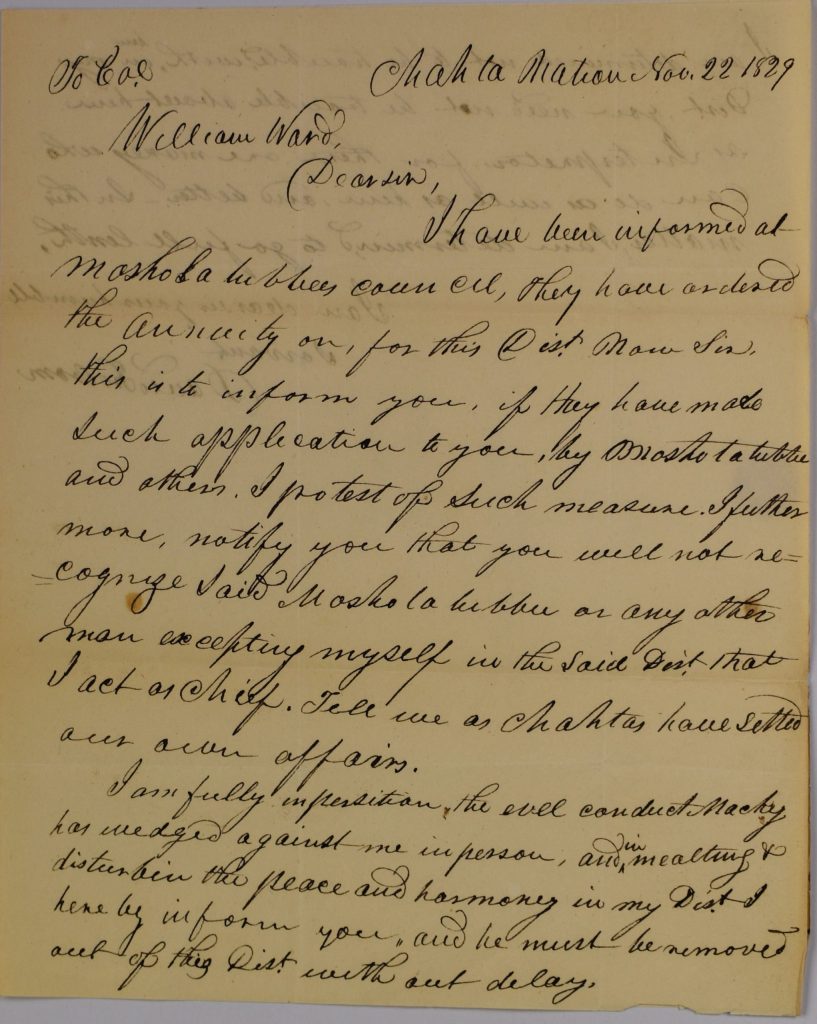 To Col. Chahta Nation Nov. 22 1829
William Ward,
Dear sir,
I have been informed at
Moshola tubbees council, they have ordered
the annuity on, for this Dist. Now Sir,
this is to inform you, if they have made
such application to you, by Mosholatubbee
and others. I protest of such measure. I futher
more, notify you that you will not re=
=cognize said Moshola tubbee or any other
man excepting myself in the said Dist. that
I act as chief. Tell we as Chahtas have settled
our own affairs.
I am fully in persition, the evel conduct Macky
has wedged against me in person, and in mealting &
disturbin the peace and harmoney in my Dist. I
here by inform you, and he must be removed
out of this Dist. with out delay.